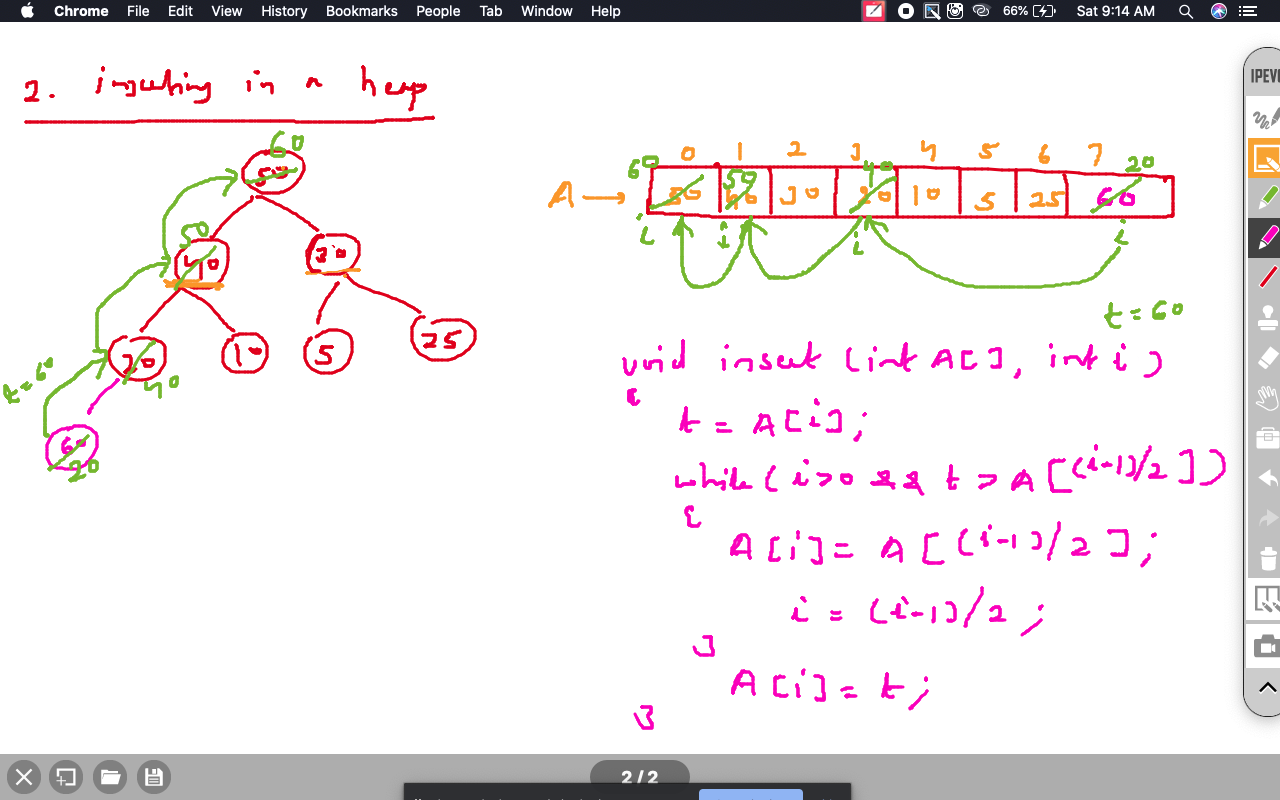 Chrome File Edit View History Bookmarks People Tab Window Help 66% Sat 9:14 AM
IPEV
2. inserting in a heap
60
50
50
40
30
20
40
10
5
25
t=60
60
20
0 1 2 3 4 5 6 7
60 50 40 20
A → 50 40 30 20 10 5 25 60
i i i i
t=60
void insert (int A[], int i)
{
t = A[i];
while (i>0 && t > A[(i-1)/2])
{
A[i] = A[(i-1)/2];
i = (i-1)/2;
}
A[i] = t;
}
2 / 2